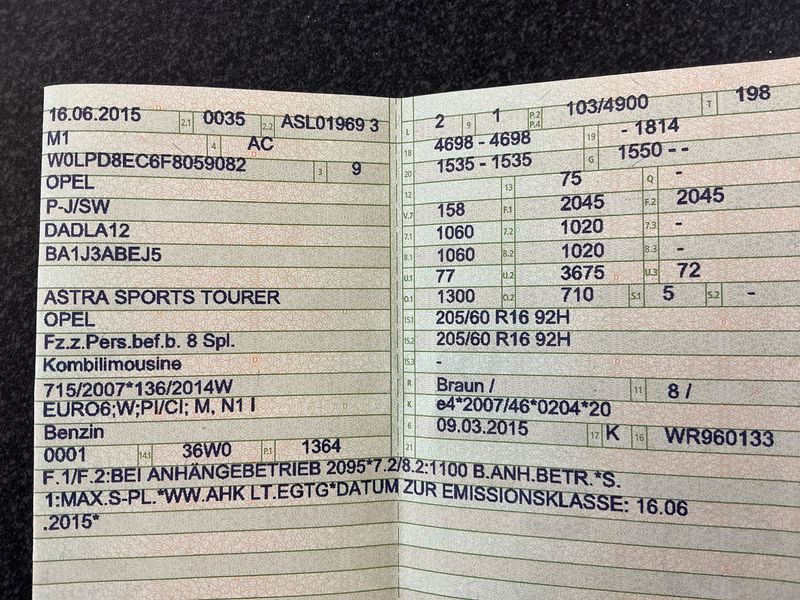 16.06.2015 2.1 0035 2.2 ASL01969 3
M1 4 AC
W0LPD8EC6F8059082 3 9
OPEL
P-J/SW
DADLA12
BA1J3ABEJ5
ASTRA SPORTS TOURER
OPEL
Fz.z.Pers.bef.b. 8 Spl.
Kombilimousine
715/2007*136/2014W
EURO6;W;PI/CI; M, N1 I
Benzin
0001 14.1 36W0 P.1 1364
L 2 9 1 P.2 P.4 103/4900 T 198
18 4698 - 4698 19 - 1814
20 1535 - 1535 G 1550 - -
12 13 75 Q -
V.7 158 F.1 2045 F.2 2045
7.1 1060 7.2 1020 7.3 -
8.1 1060 8.2 1020 8.3 -
U.1 77 U.2 3675 U.3 72
O.1 1300 O.2 710 S.1 5 S.2 -
15.1 205/60 R16 92H
15.2 205/60 R16 92H
15.3 -
R Braun / 11 8 /
K e4*2007/46*0204*20
6 09.03.2015 17 K 16 WR960133
21
F.1/F.2:BEI ANHÄNGEBETRIEB 2095*7.2/8.2:1100 B.ANH.BETR.*S.
1:MAX.S-PL.*WW.AHK LT.EGTG*DATUM ZUR EMISSIONSKLASSE: 16.06
.2015*